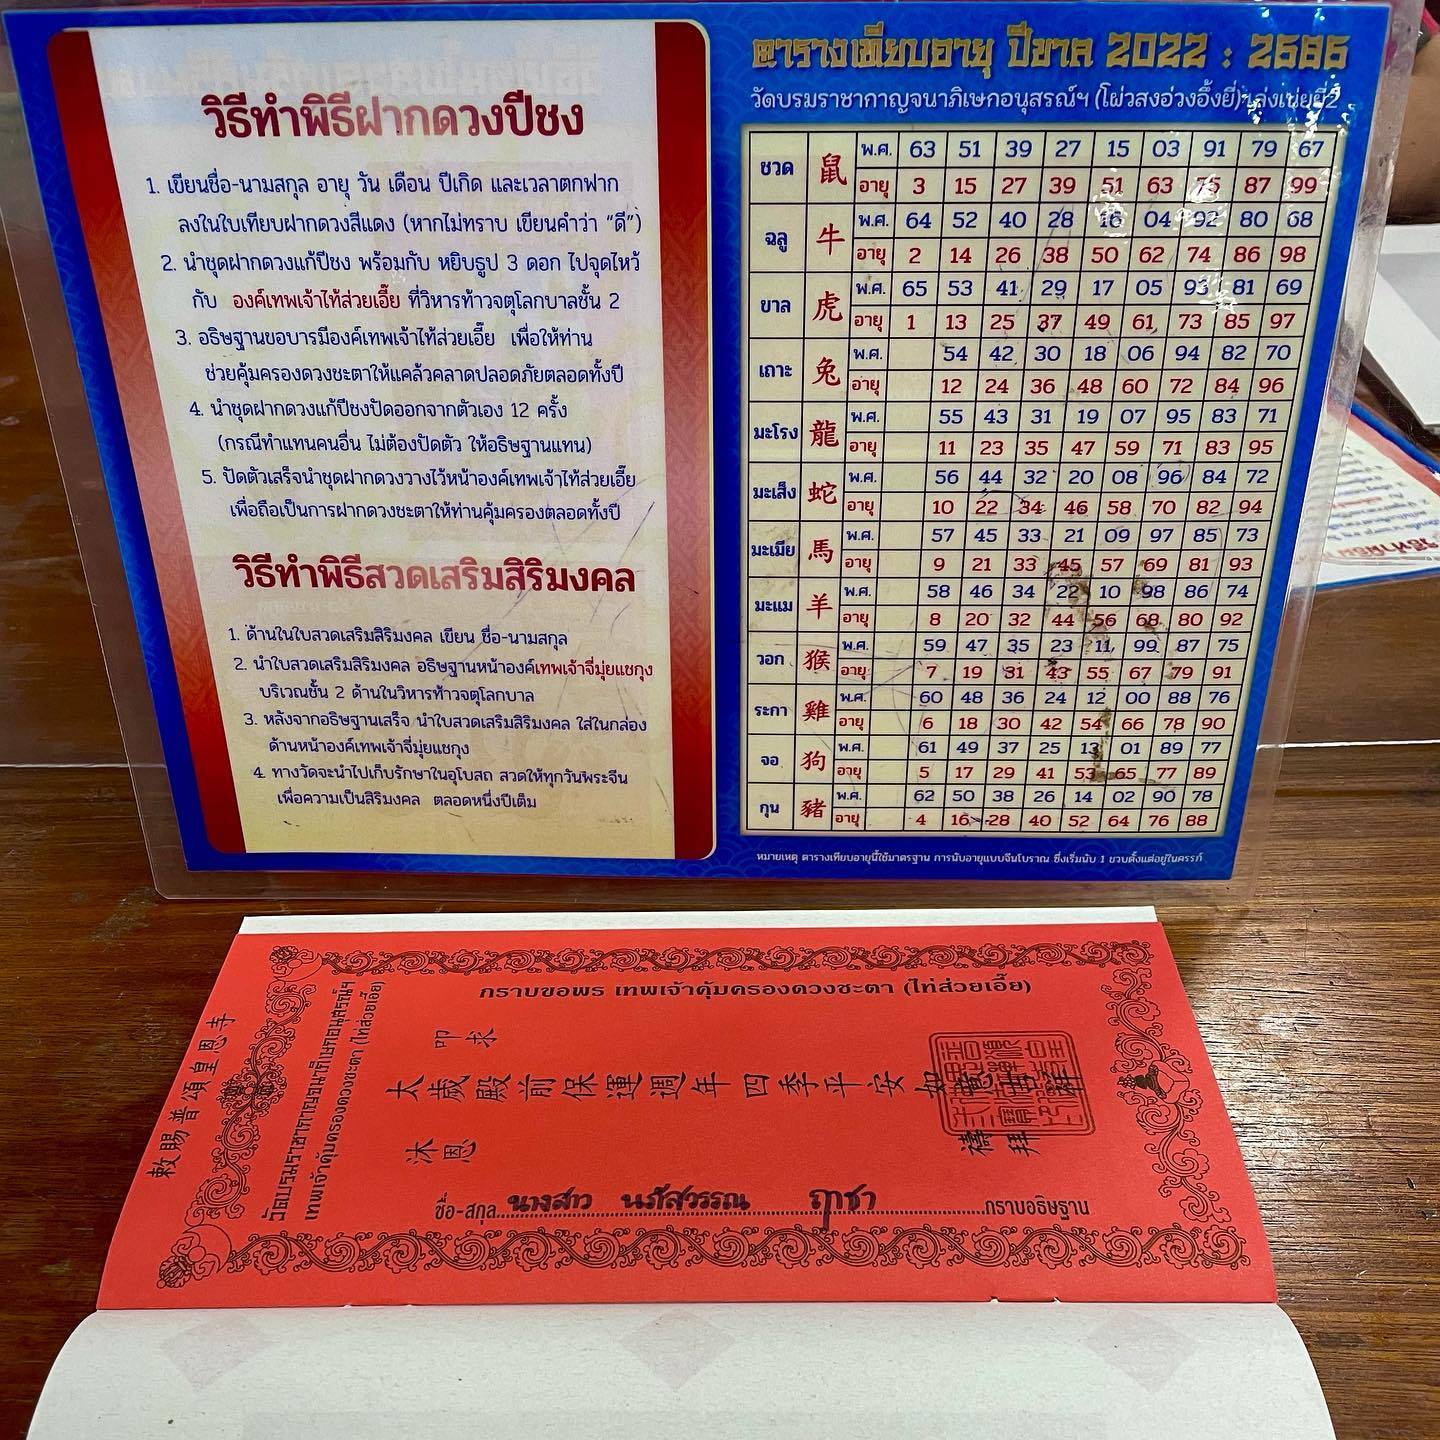 วิธีทำพิธีฝากดวงปีชง
1. เขียนชื่อ-นามสกุล อายุ วัน เดือน ปีเกิด และเวลาตกฟาก
ลงในใบเทียบฝากดวงสีแดง (หากไม่ทราบ เขียนคำว่า “ดี”)
2. นำชุดฝากดวงแก้ปีชง พร้อมกับ หยิบธูป 3 ดอก ไปจุดไหว้
กับ องค์เทพเจ้าไท้ส่วยเอี๊ย ที่วิหารท้าวจตุโลกบาลชั้น 2
3. อธิษฐานขอบารมีองค์เทพเจ้าไท้ส่วยเอี๊ย เพื่อให้ท่าน
ช่วยคุ้มครองดวงชะตาให้แคล้วคลาดปลอดภัยตลอดทั้งปี
4. นำชุดฝากดวงแก้ปีชงปัดออกจากตัวเอง 12 ครั้ง
(กรณีทำแทนคนอื่น ไม่ต้องปัดตัว ให้อธิษฐานแทน)
5. ปัดตัวเสร็จนำชุดฝากดวงวางไว้หน้าองค์เทพเจ้าไท้ส่วยเอี๊ย
เพื่อถือเป็นการฝากดวงชะตาให้ท่านคุ้มครองตลอดทั้งปี
วิธีทำพิธีสวดเสริมสิริมงคล
1. ด้านในใบสวดเสริมสิริมงคล เขียน ชื่อ-นามสกุล
2. นำใบสวดเสริมสิริมงคล อธิษฐานหน้าองค์เทพเจ้าจี่มุ่ยแชกุง
บริเวณชั้น 2 ด้านในวิหารท้าวจตุโลกบาล
3. หลังจากอธิษฐานเสร็จ นำใบสวดเสริมสิริมงคล ใส่ในกล่อง
ด้านหน้าองค์เทพเจ้าจี่มุ่ยแชกุง
4. ทางวัดจะนำไปเก็บรักษาในอุโบสถ สวดให้ทุกวันพระจีน
เพื่อความเป็นสิริมงคล ตลอดหนึ่งปีเต็ม
ตารางเทียบอายุ ปีขาล 2022 : 2565
วัดบรมราชากาญจนาภิเษกอนุสรณ์ฯ (โผ่วสงอ่วงอึ้งยี่) เล่งเน่ยยี่2
ชวด 鼠 พ.ศ. 63 51 39 27 15 03 91 79 67
อายุ 3 15 27 39 51 63 75 87 99
ฉลู 牛 พ.ศ. 64 52 40 28 16 04 92 80 68
อายุ 2 14 26 38 50 62 74 86 98
ขาล 虎 พ.ศ. 65 53 41 29 17 05 93 81 69
อายุ 1 13 25 37 49 61 73 85 97
เถาะ 兔 พ.ศ. 54 42 30 18 06 94 82 70
อายุ 12 24 36 48 60 72 84 96
มะโรง 龍 พ.ศ. 55 43 31 19 07 95 83 71
อายุ 11 23 35 47 59 71 83 95
มะเส็ง 蛇 พ.ศ. 56 44 32 20 08 96 84 72
อายุ 10 22 34 46 58 70 82 94
มะเมีย 馬 พ.ศ. 57 45 33 21 09 97 85 73
อายุ 9 21 33 45 57 69 81 93
มะแม 羊 พ.ศ. 58 46 34 22 10 98 86 74
อายุ 8 20 32 44 56 68 80 92
วอก 猴 พ.ศ. 59 47 35 23 11 99 87 75
อายุ 7 19 31 43 55 67 79 91
ระกา 雞 พ.ศ. 60 48 36 24 12 00 88 76
อายุ 6 18 30 42 54 66 78 90
จอ 狗 พ.ศ. 61 49 37 25 13 01 89 77
อายุ 5 17 29 41 53 65 77 89
กุน 豬 พ.ศ. 62 50 38 26 14 02 90 78
อายุ 4 16 28 40 52 64 76 88
หมายเหตุ ตารางเทียบอายุนี้ใช้มาตรฐาน การนับอายุแบบจีนโบราณ ซึ่งเริ่มนับ 1 ขวบตั้งแต่อยู่ในครรภ์
敕賜普頌皇恩寺
วัดบรมราชากาญจนาภิเษกอนุสรณ์ฯ
เทพเจ้าคุ้มครองดวงชะตา (ไท่ส่วยเอี๊ย)
กราบขอพร เทพเจ้าคุ้มครองดวงชะตา (ไท่ส่วยเอี๊ย)
叩求
太歲殿前保運週年四季平安如意吉祥
沐恩
禱拜
ชื่อ-สกุล นางสาว นภัสวรรณ ฤาชา กราบอธิษฐาน